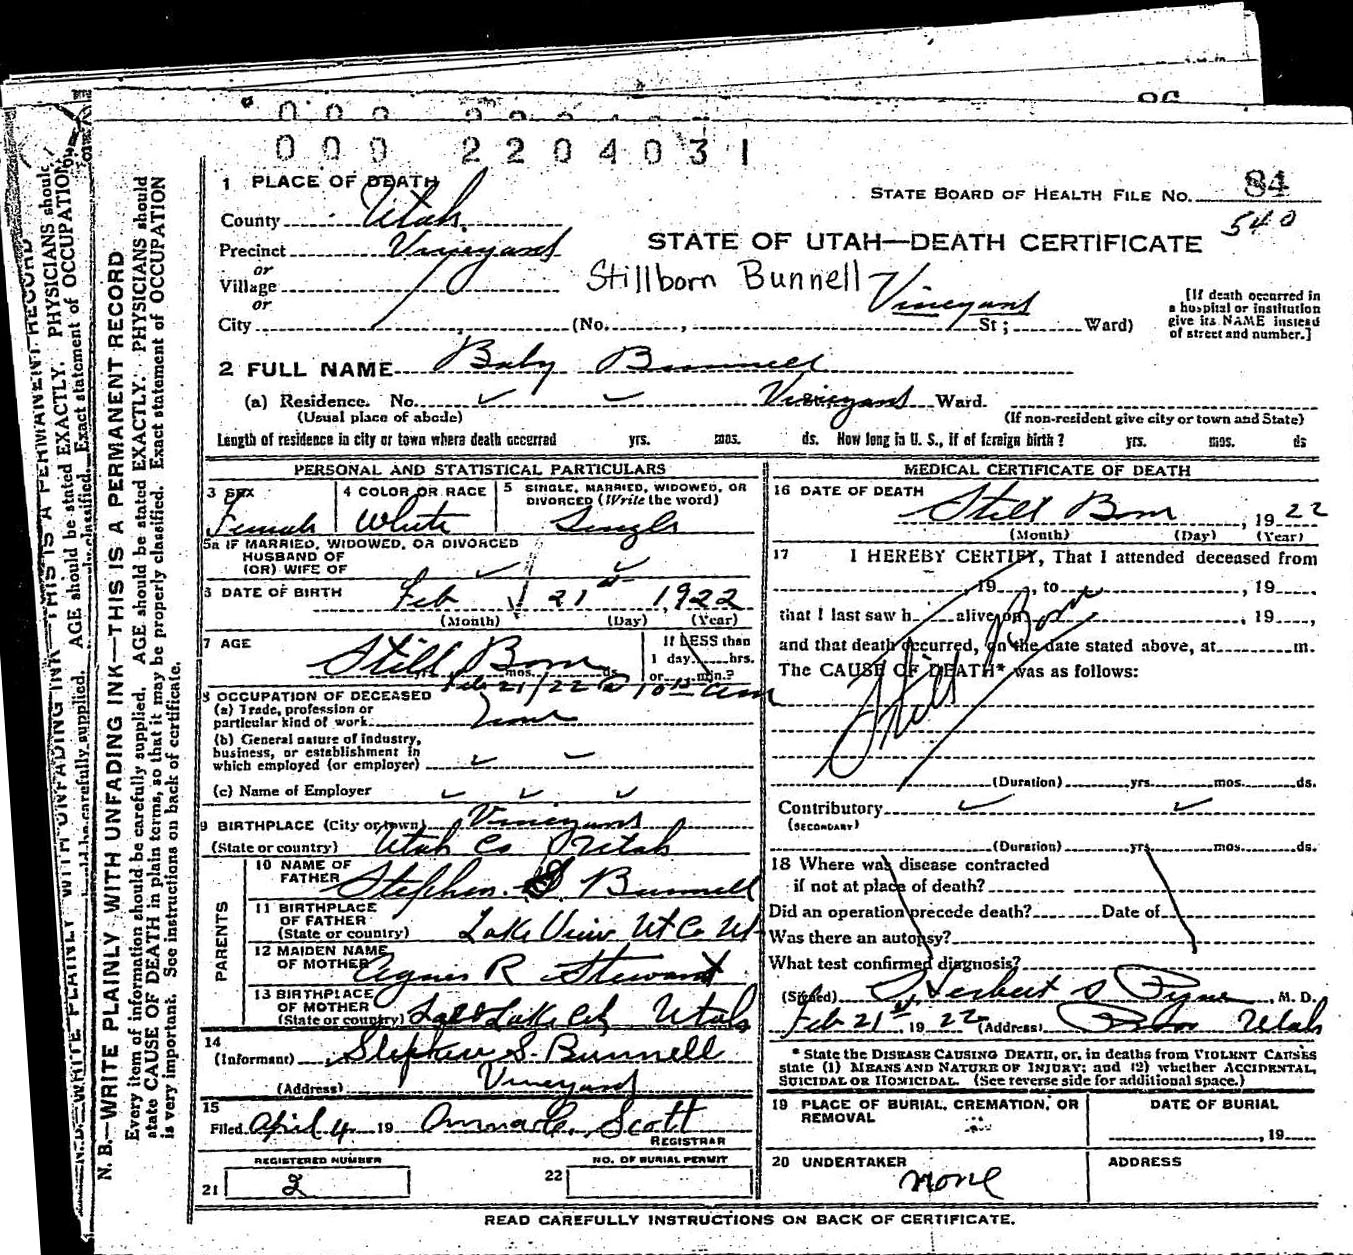 000 2204031
1 PLACE OF DEATH
STATE BOARD OF HEALTH FILE NO. 84
540
County Utah
Precinct Vineyard
STATE OF UTAH—DEATH CERTIFICATE
or
Village
Stillborn Bunnell
or
City (No. , Vineyard St ; Ward)
[If death occurred in
a hospital or institution
give its NAME instead
of street and number.]
2 FULL NAME Baby Bunnell
(a) Residence. No. Vineyard Ward.
(Usual place of abode) (If non-resident give city or town and State)
Length of residence in city or town where death occurred yrs. mos. ds. How long in U. S., if of foreign birth ? yrs. mos. ds
PERSONAL AND STATISTICAL PARTICULARS
3 SEX
Female
4 COLOR OR RACE
White
5 SINGLE, MARRIED, WIDOWED, OR
DIVORCED (Write the word)
Single
5a IF MARRIED, WIDOWED, OR DIVORCED
HUSBAND OF
(OR) WIFE OF
6 DATE OF BIRTH Feb 21st 1922
(Month) (Day) (Year)
7 AGE
Still Born
mos. ds.
If LESS than
1 day, hrs.
or min.?
Feb 21/22 @ 10 15 am
8 OCCUPATION OF DECEASED
(a) Trade, profession or
particular kind of work none
(b) General nature of industry,
business, or establishment in
which employed (or employer)
(c) Name of Employer
9 BIRTHPLACE (City or town) Vineyard
(State or country) Utah Co Utah
PARENTS
10 NAME OF
FATHER Stephen S Bunnell
11 BIRTHPLACE
OF FATHER
(State or country) Lake View Ut Co Ut
12 MAIDEN NAME
OF MOTHER Agnes R Stewart
13 BIRTHPLACE
OF MOTHER
(State or country) Salt Lake City Utah
14
(Informant) Stephen S. Bunnell
(Address) Vineyard
15
Filed April 4 19 Anna C. Scott
REGISTRAR
REGISTERED NUMBER
21 2
NO. OF BURIAL PERMIT
22
MEDICAL CERTIFICATE OF DEATH
16 DATE OF DEATH
Still Born , 1922
(Month) (Day) (Year)
17 I HEREBY CERTIFY, That I attended deceased from
, 19 , to , 19 ,
that I last saw h alive on , 19 ,
and that death occurred, on the date stated above, at m.
The CAUSE OF DEATH* was as follows:
Still Born
(Duration) yrs. mos. ds.
Contributory
(SECONDARY)
(Duration) yrs. mos. ds.
18 Where was disease contracted
if not at place of death?
Did an operation precede death? Date of
Was there an autopsy?
What test confirmed diagnosis?
(Signed) Herbert S Pyne, M. D.
Feb 21st, 1922 (Address) Provo Utah
* State the DISEASE CAUSING DEATH, or, in deaths from VIOLENT CAUSES
state (1) MEANS AND NATURE OF INJURY; and (2) whether ACCIDENTAL,
SUICIDAL OR HOMICIDAL. (See reverse side for additional space.)
19 PLACE OF BURIAL, CREMATION, OR
REMOVAL
DATE OF BURIAL
, 19
20 UNDERTAKER
none
ADDRESS
READ CAREFULLY INSTRUCTIONS ON BACK OF CERTIFICATE.
N. B.—WRITE PLAINLY WITH UNFADING INK—THIS IS A PERMANENT RECORD
Every item of information should be carefully supplied. AGE should be stated EXACTLY. PHYSICIANS should
state CAUSE OF DEATH in plain terms, so that it may be properly classified. Exact statement of OCCUPATION
is very important. See instructions on back of certificate.